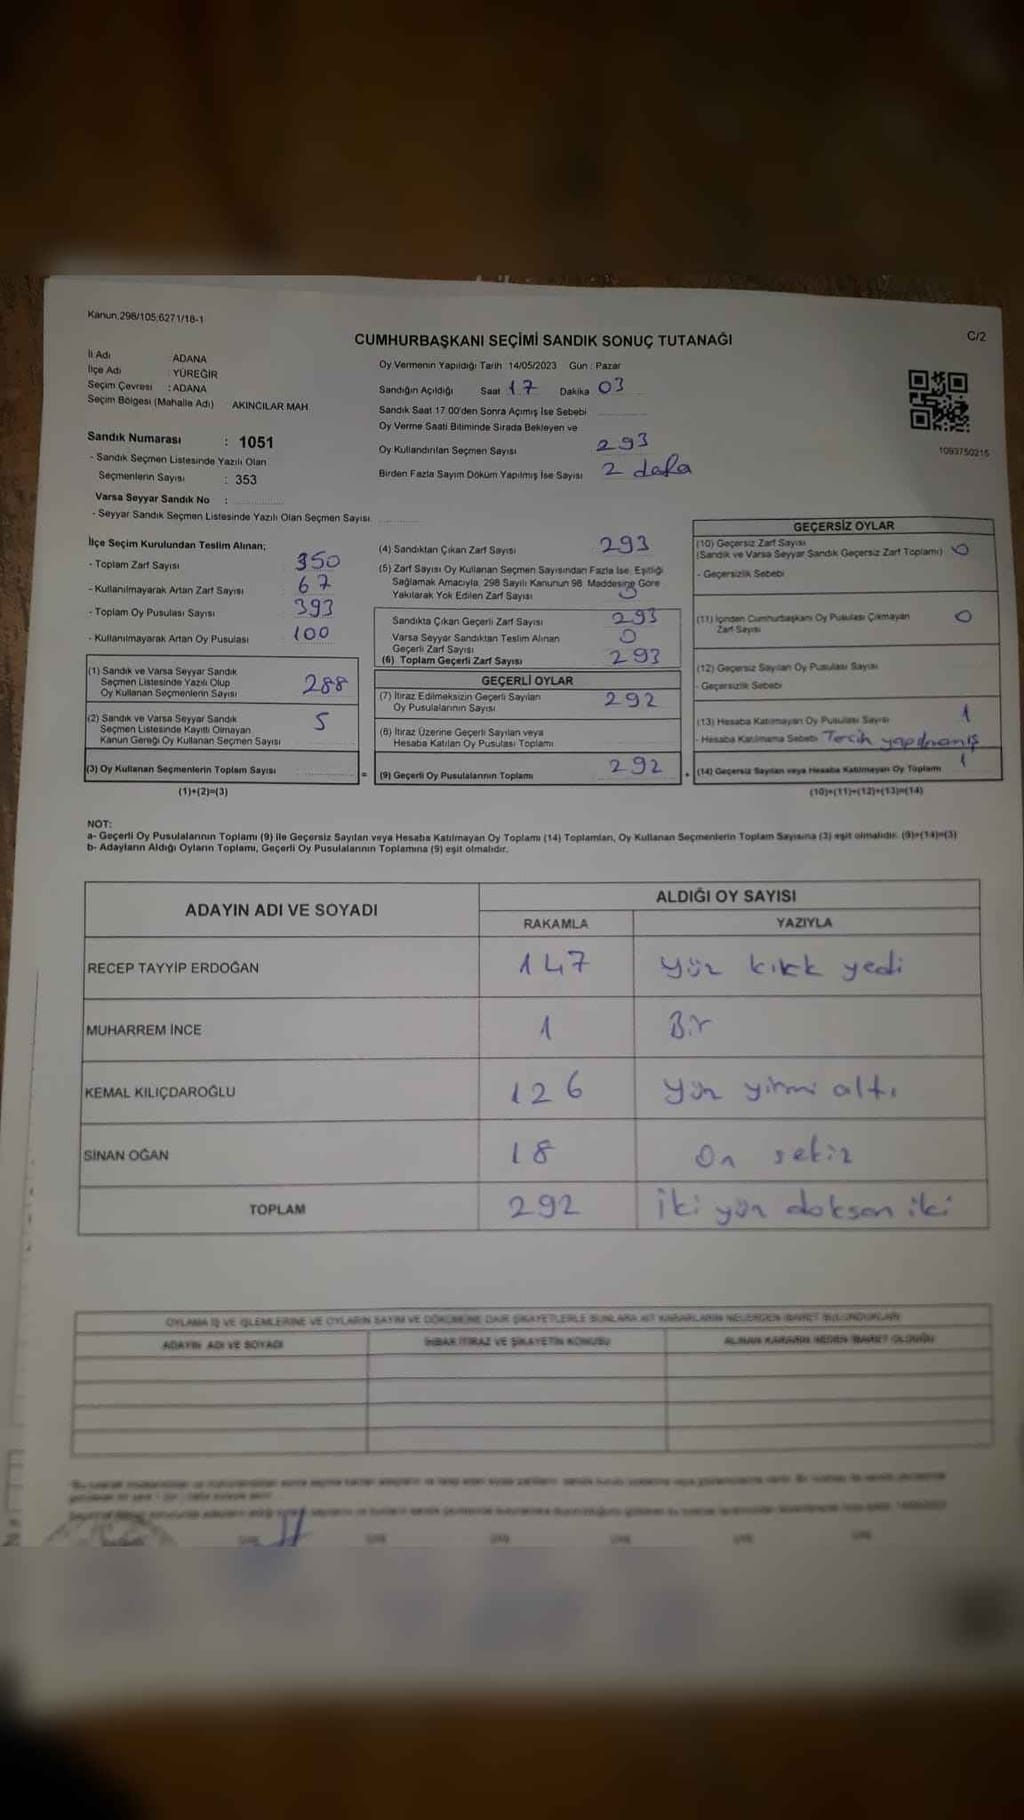 Kanun,298/105;6271/18-1
C/2
CUMHURBAŞKANI SEÇİMİ SANDIK SONUÇ TUTANAĞI
İl Adı : ADANA
İlçe Adı : YÜREĞİR
Seçim Çevresi : ADANA
Seçim Bölgesi (Mahalle Adı) AKINCILAR MAH
Sandık Numarası : 1051
- Sandık Seçmen Listesinde Yazılı Olan
Seçmenlerin Sayısı : 353
Varsa Seyyar Sandık No :
- Seyyar Sandık Seçmen Listesinde Yazılı Olan Seçmen Sayısı
Oy Vermenin Yapıldığı Tarih : 14/05/2023 Gün : Pazar
Sandığın Açıldığı Saat 17 Dakika 03
Sandık Saat 17.00'den Sonra Açımış İse Sebebi
Oy Verme Saati Bitiminde Sırada Bekleyen ve
Oy Kullandırılan Seçmen Sayısı 293
Birden Fazla Sayım Döküm Yapılmış İse Sayısı 2 defa
1093750215
İlçe Seçim Kurulundan Teslim Alınan;
- Toplam Zarf Sayısı 350
- Kullanılmayarak Artan Zarf Sayısı 67
- Toplam Oy Pusulası Sayısı 393
- Kullanılmayarak Artan Oy Pusulası 100
(1) Sandık ve Varsa Seyyar Sandık
Seçmen Listesinde Yazılı Olup
Oy Kullanan Seçmenlerin Sayısı 288
(2) Sandık ve Varsa Seyyar Sandık
Seçmen Listesinde Kayıtlı Olmayan
Kanun Gereği Oy Kullanan Seçmen Sayısı 5
(3) Oy Kullanan Seçmenlerin Toplam Sayısı
(1)+(2)=(3)
(4) Sandıktan Çıkan Zarf Sayısı 293
(5) Zarf Sayısı Oy Kullanan Seçmen Sayısından Fazla İse, Eşitliği
Sağlamak Amacıyla, 298 Sayılı Kanunun 98. Maddesine Göre
Yakılarak Yok Edilen Zarf Sayısı
Sandıkta Çıkan Geçerli Zarf Sayısı 293
Varsa Seyyar Sandıktan Teslim Alınan
Geçerli Zarf Sayısı 0
(6) Toplam Geçerli Zarf Sayısı 293
GEÇERLİ OYLAR
(7) İtiraz Edilmeksizin Geçerli Sayılan
Oy Pusulalarının Sayısı 292
(8) İtiraz Üzerine Geçerli Sayılan veya
Hesaba Katılan Oy Pusulası Toplamı
= (9) Geçerli Oy Pusulalarının Toplamı 292
GEÇERSİZ OYLAR
(10) Geçersiz Zarf Sayısı
(Sandık ve Varsa Seyyar Sandık Geçersiz Zarf Toplamı) 0
- Geçersizlik Sebebi
(11) İçinden Cumhurbaşkanı Oy Pusulası Çıkmayan
Zarf Sayısı 0
(12) Geçersiz Sayılan Oy Pusulası Sayısı
- Geçersizlik Sebebi
(13) Hesaba Katılmayan Oy Pusulası Sayısı 1
- Hesaba Katılmama Sebebi Tercih yapılmamış
+ (14) Geçersiz Sayılan veya Hesaba Katılmayan Oy Toplamı 1
(10)+(11)+(12)+(13)=(14)
NOT:
a- Geçerli Oy Pusulalarının Toplamı (9) ile Geçersiz Sayılan veya Hesaba Katılmayan Oy Toplamı (14) Toplamları, Oy Kullanan Seçmenlerin Toplam Sayısına (3) eşit olmalıdır. (9)+(14)=(3)
b- Adayların Aldığı Oyların Toplamı, Geçerli Oy Pusulalarının Toplamına (9) eşit olmalıdır.
ADAYIN ADI VE SOYADI
ALDIĞI OY SAYISI
RAKAMLA YAZIYLA
RECEP TAYYİP ERDOĞAN 147 Yüz kırk yedi
MUHARREM İNCE 1 Bir
KEMAL KILIÇDAROĞLU 126 Yüz yirmi altı
SİNAN OĞAN 18 On sekiz
TOPLAM 292 İki yüz doksan iki
OYLAMA İŞ VE İŞLEMLERİNE VE OYLARIN SAYIM VE DÖKÜMÜNE DAİR ŞİKAYETLERLE BUNLARA AİT KARARLARIN NELERDEN İBARET BULUNDUKLARI
ADAYIN ADI VE SOYADI İHBAR İTİRAZ VE ŞİKAYETİN KONUSU ALINAN KARARIN NEDEN İBARET OLDUĞU